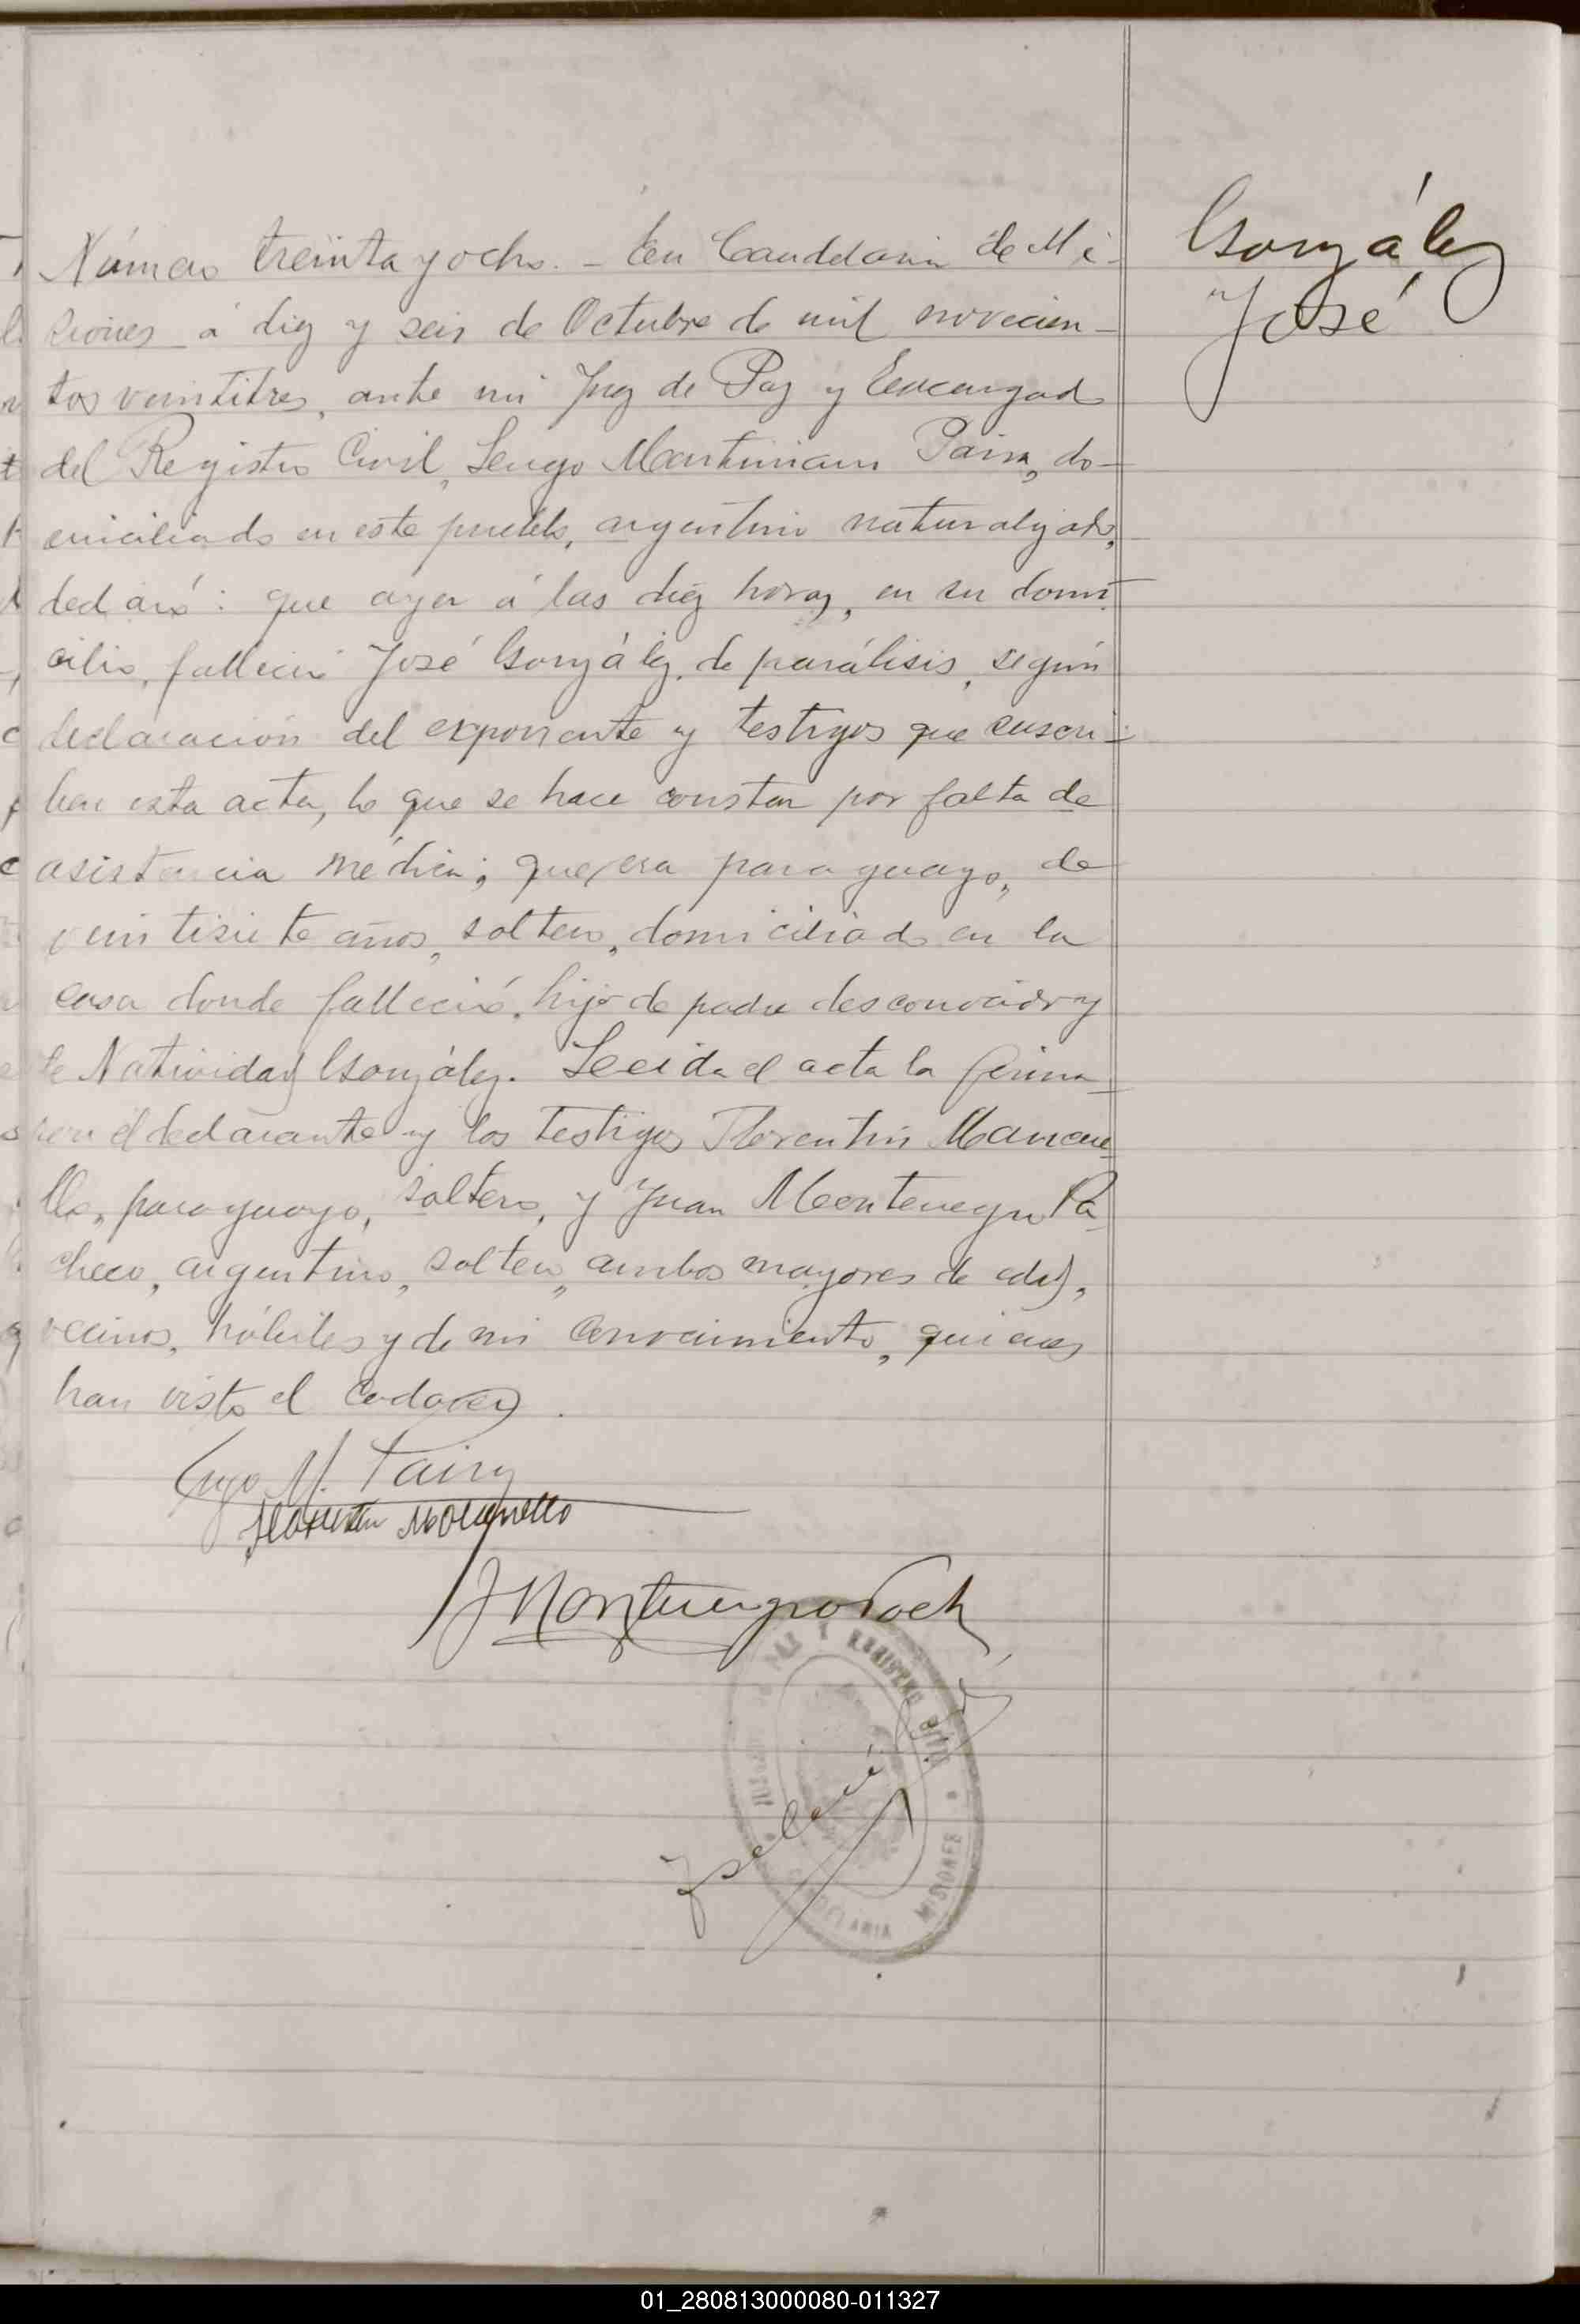 González
José
Número treinta y ocho. - En Candelaria de Mi-
siones á diez y seis de Octubre de mil novecien-
tos veintitres, ante mi Juez de Paz y Encargado
del Registro Civil, Lengo Martiniano Paiva, do-
miciliado en este pueblo, argentino naturalizado,
declaró: que ayer á las diez horas, en su domi-
cilio, falleció José González, de parálisis, según
declaración del exponente y testigos que suscri-
ben esta acta, lo que se hace constar por falta de
asistencia médica; que era paraguayo, de
veintisiete años, soltero, domiciliado en la
casa donde falleció, hijo de padre desconocido y
de Natividad González. Leida el acta la firma-
ron el declarante y los testigos Florentin Mancue-
llo, paraguayo, soltero, y Juan Montenegro Pa-
checo, argentino, soltero, ambos mayores de edad,
vecinos, hábiles y de mi conocimiento, quienes
han visto el cadaver.
M. Paiva
Florentin Mancuello
J Montenegro Pach
PAZ Y REGISTRO CIVIL
CANDELARIA MISIONES
01_280813000080-011327